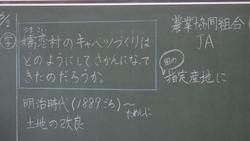 学
つまごい
嬬恋村のキャベツづくりは
どのようにしてさかんになって
きたのだろうか。
明治時代(1889ごろ)〜ためしに
土地の改良
農業協同組合
JA
国の
指定産地に